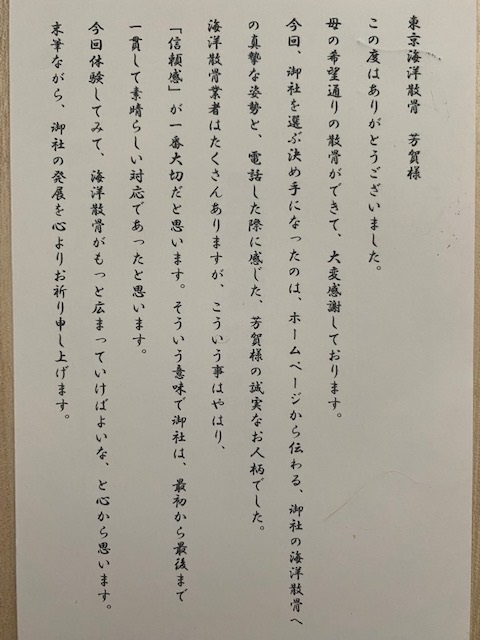 東京海洋散骨　芳賀様
この度はありがとうございました。
母の希望通りの散骨ができて、大変感謝しております。
今回、御社を選ぶ決め手になったのは、ホームページから伝わる、御社の海洋散骨へ
の真摯な姿勢と、電話した際に感じた、芳賀様の誠実なお人柄でした。
海洋散骨業者はたくさんありますが、こういう事はやはり、
「信頼感」が一番大切だと思います。そういう意味で御社は、最初から最後まで
一貫して素晴らしい対応であったと思います。
今回体験してみて、海洋散骨がもっと広まっていけばよいな、と心から思います。
末筆ながら、御社の発展を心よりお祈り申し上げます。